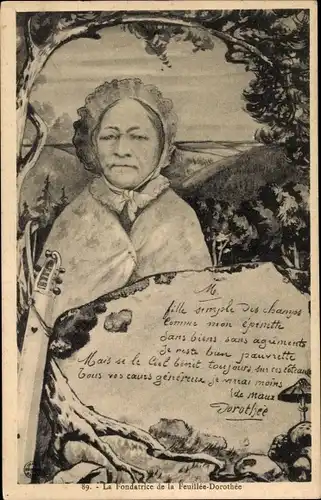 M
fille simple des champs
Comme mon épinette
Sans biens sans agréments
Je reste bien pauvrette
Mais si le Ciel bénit toujours sur ces coteaux
Tous vos cœurs généreux je vivrai moins
de maux
Dorothée
89. - La Fondatrice de la Feuillée-Dorothée